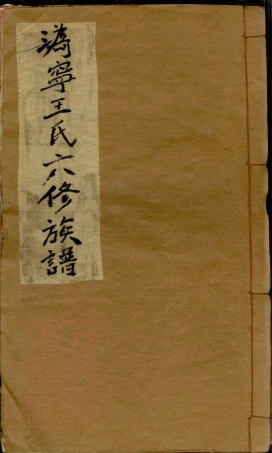 溈寧王氏六修族譜